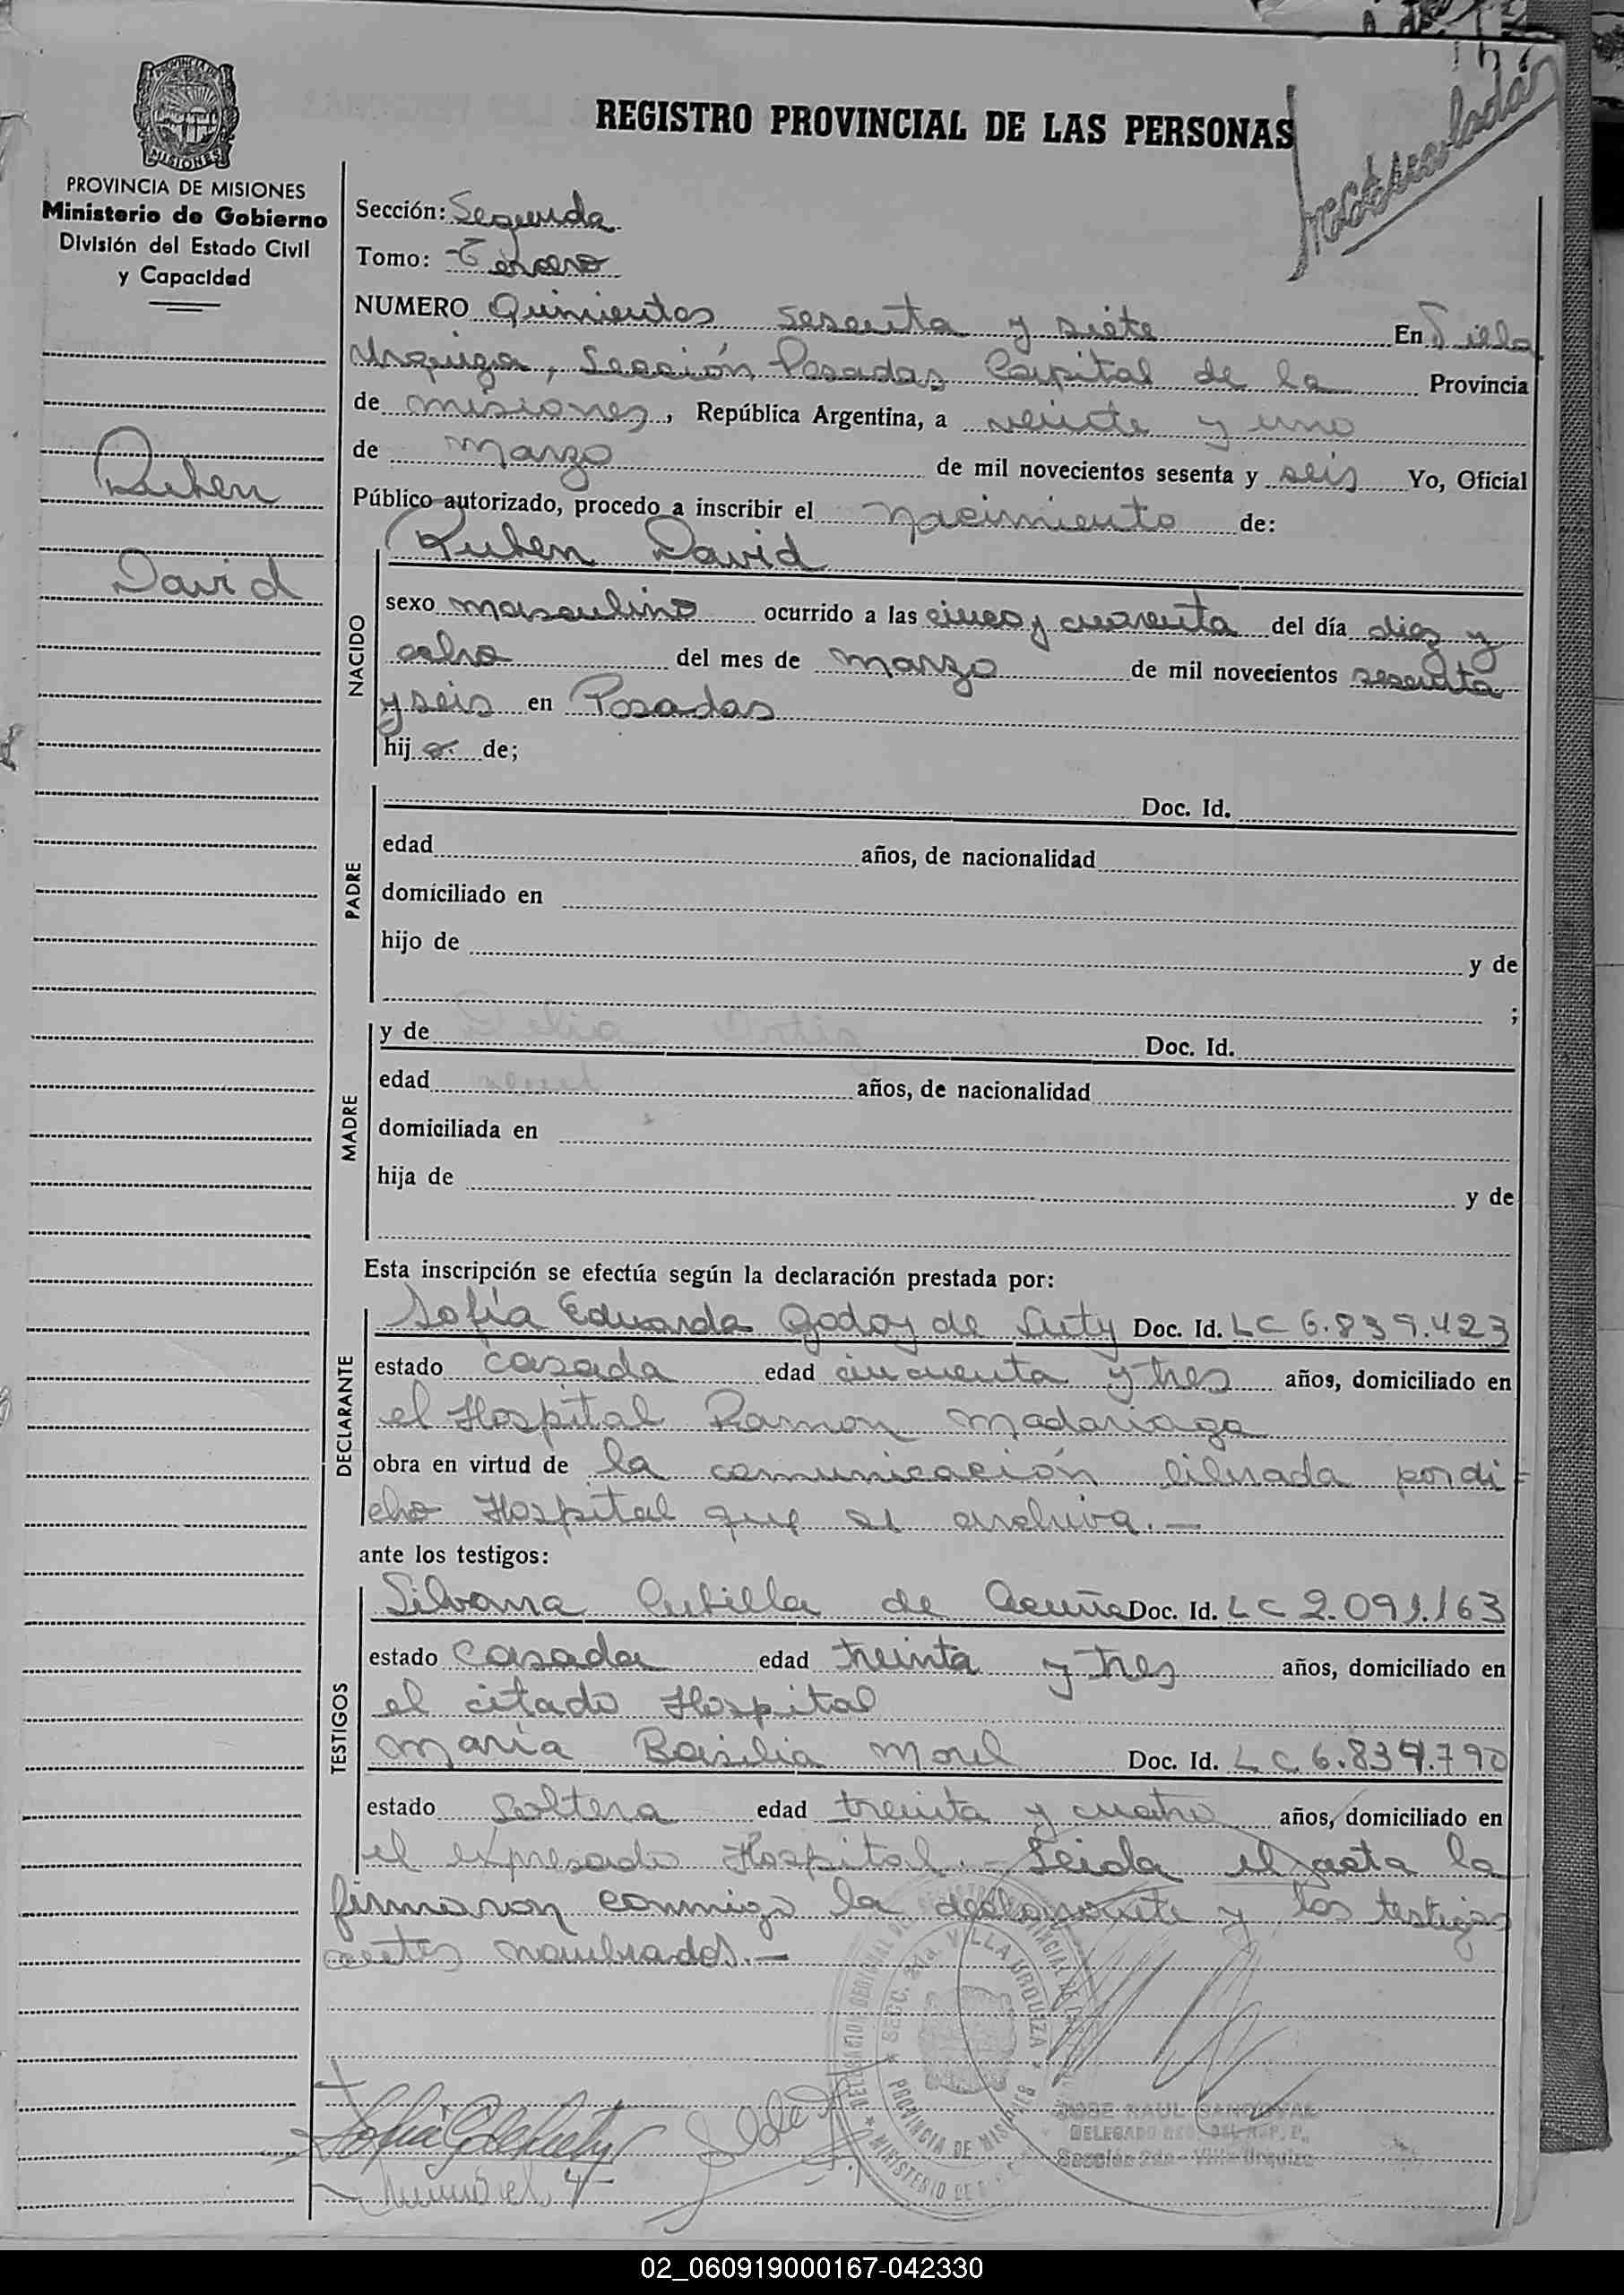 REGISTRO PROVINCIAL DE LAS PERSONAS
MISIONES
PROVINCIA DE MISIONES
Ministerio de Gobierno
División del Estado Civil
y Capacidad
Ruben
David
Sección: Segunda
Tomo: Tercero
NUMERO Quinientos sesenta y siete En Villa
Urquiza, Sección Posadas Capital de la Provincia
de misiones, República Argentina, a veinte y uno
de marzo de mil novecientos sesenta y seis Yo, Oficial
Público autorizado, procedo a inscribir el nacimiento de:
Ruben David
NACIDO
sexo masculino ocurrido a las cinco y cuarenta del día diez y
ocho del mes de marzo de mil novecientos sesenta
y seis en Posadas
hijo de;
PADRE
Doc. Id.
edad años, de nacionalidad
domiciliado en
hijo de y de
;
MADRE
y de Delia Ortiz Doc. Id.
edad años, de nacionalidad
domiciliada en
hija de y de
Esta inscripción se efectúa según la declaración prestada por:
DECLARANTE
Sofía Eduarda Godoy de Doc. Id. LC 6.839.423
estado casada edad cincuenta y tres años, domiciliado en
el Hospital Ramon Madariaga
obra en virtud de la comunicación librada por di=
cho Hospital que se archiva.—
ante los testigos:
TESTIGOS
Silvana de Acuña Doc. Id. LC 2.091.163
estado casada edad treinta y tres años, domiciliado en
el citado Hospital
María Basilia Morel Doc. Id. LC 6.839.790
estado soltera edad treinta y cuatro años, domiciliado en
el expresado Hospital.— Leida el acta la
firmaron conmigo la declarante y los testigos
antes nombrados.—
SECC. 2da. VILLA URQUIZA
PROVINCIA DE MISIONES
JOSE RAUL SANDOVAL
DELEGADO REG. DEL R.P.P.
Sección 2da - Villa Urquiza
02_060919000167-042330